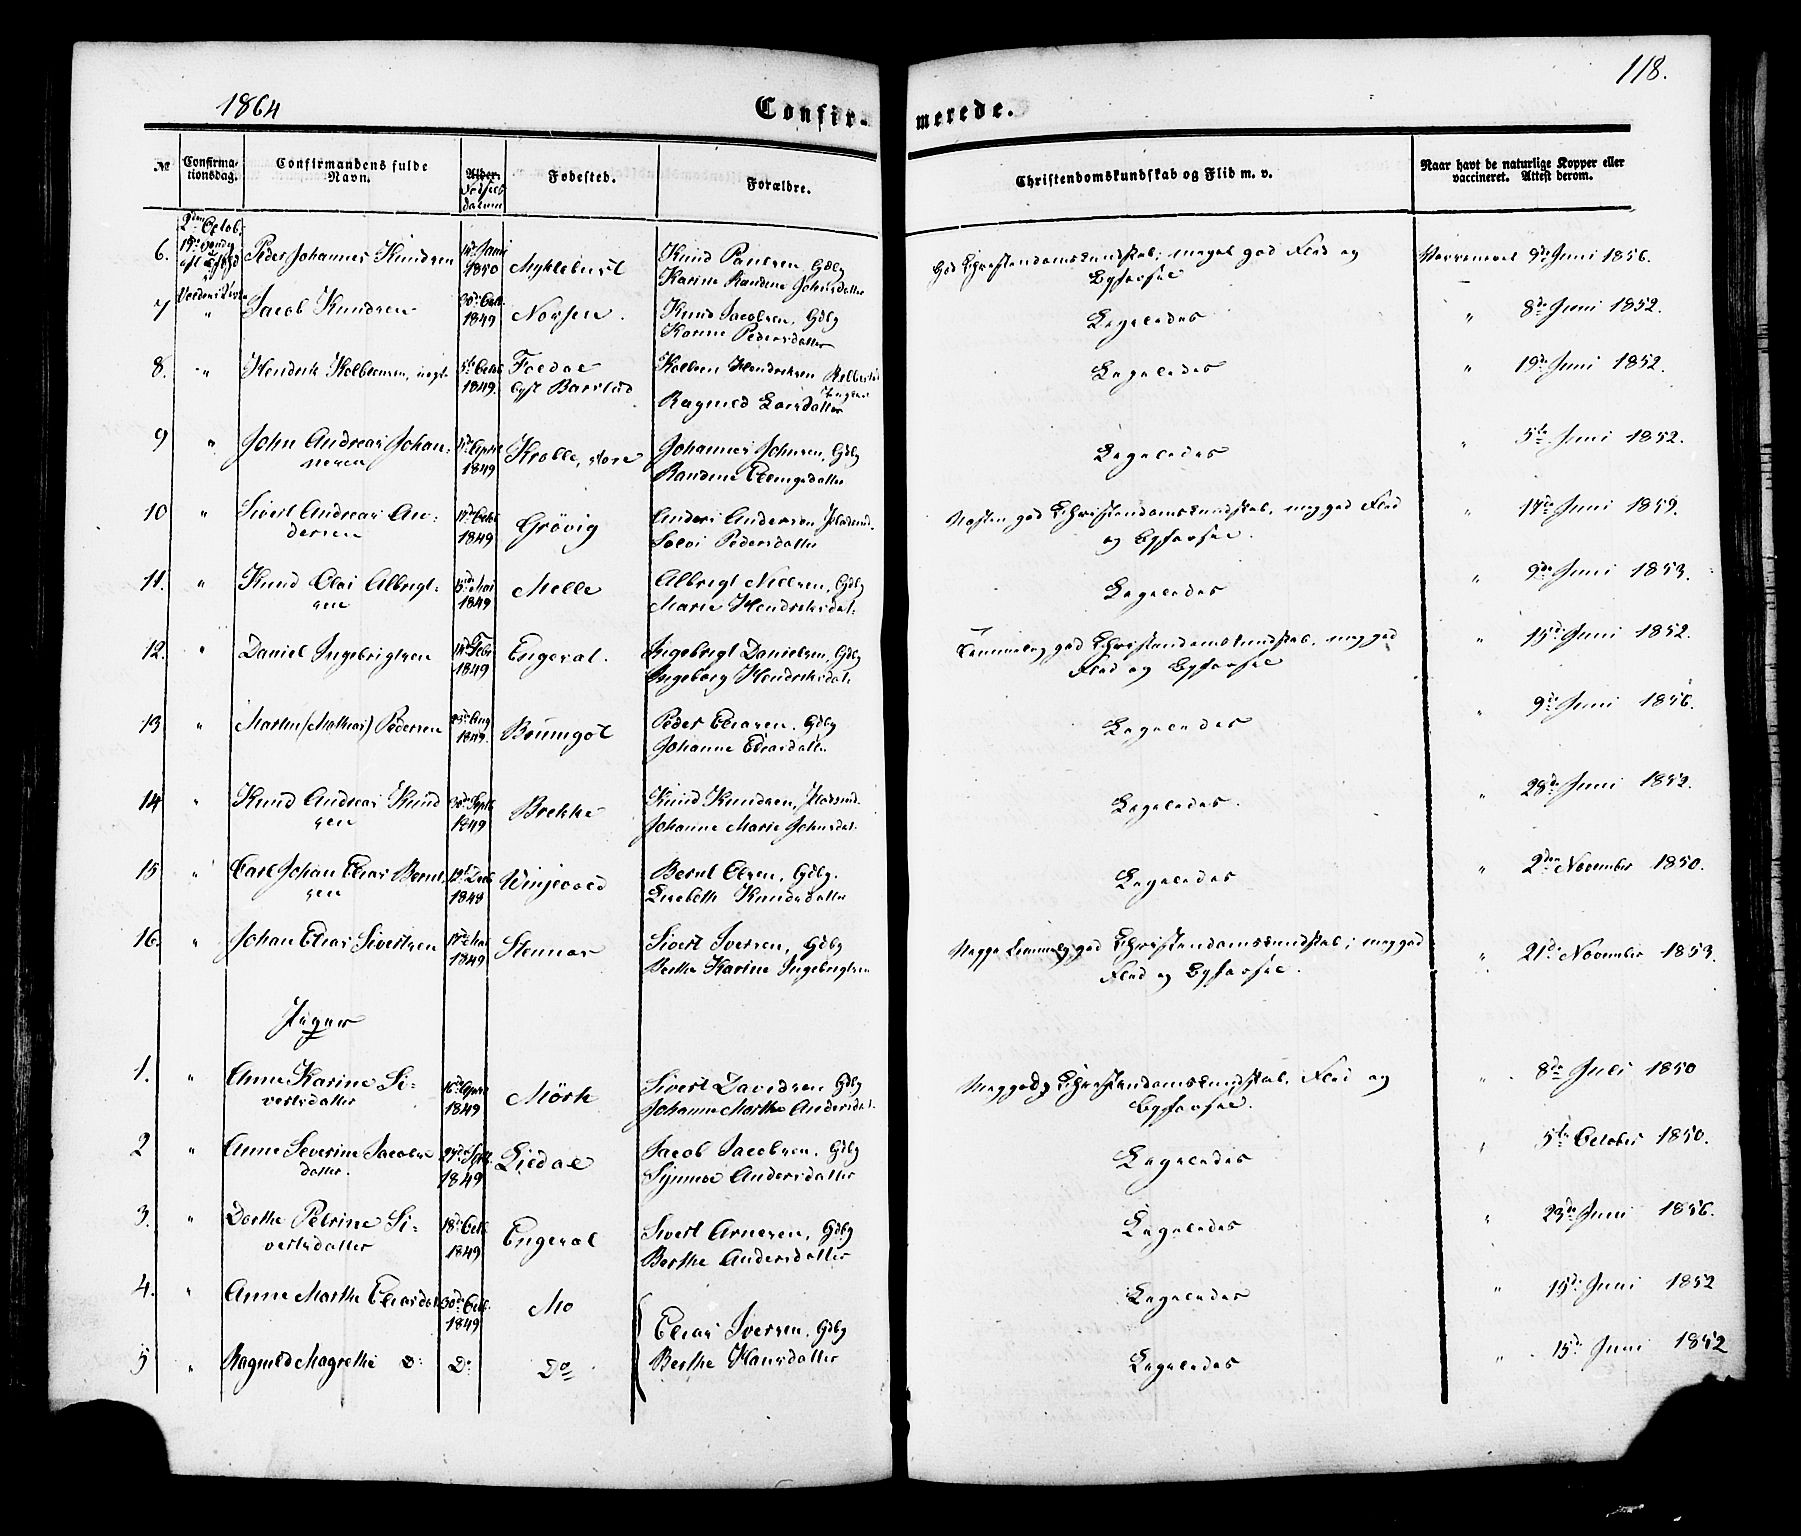 118.
1864
Confirmerede.
№
Confirmationsdag.
Confirmandens fulde Navn.
Alder
Fødselsdatum
Fødested.
Forældre.
Christendomskundskab og Flid m. v.
Naar havt de naturlige Kopper eller vaccineret. Attest derom.
2den Octob.
6. Peder Johannes Knudsen 1850 Myklebust
Knud Paulsen Gdbr
Karine Randine Johnsdatter
God Christendomskundskab; meget god Flid og
Opførsel
9de Juni 1856.
7 " Jacob Knudsen 1849 Norsen.
Knud Jacobsen, Gdbr
Karine Pedersdatter
Ligeledes
" 8de Juni 1852.
8. " Hendrik 1849.
Hendriksen
Ragnild Larsdatter
Ligeledes
" 19de Juni 1852.
9 " John Andreas Johannesen 1849 Krolle, store
Johannes Johnsen, Gdbr
Randine
Ligeledes
" 5te Juni 1852.
10 " Sivert Andreas Andersen 17de Octb 1849 Grövig
Anders Andersen
Pedersdatter
Næsten god Christendomskundskab, meg god Flid
og Opførsel.
" 17de Juni 1852.
11. " Knud Olai Albrigtsen Mai 1849 Melle
Albrigt Nielsen, Gdbr
Marie Hendriksdat.
Ligeledes
" 9de Juni 1853.
12. " Daniel Ingebrigtsen Febr 1849 Engeral.
Ingebrigt Danielsen, Gdbr
Ingeborg Hendriksdat.
Temmelig god Christendomskundskab, meg god
Flid og Opførsel
" 15de Juni 1852.
13 " Martin (Mathias) Pedersen Aug 1849.
Peder Eliasen. Gdbr
Johanne Eliasdatter
Ligeledes
" 9de Juni 1856.
14 " Knud Andreas Knudsen 30de Septb 1849 Brekke
Knud Knudsen,
Johanne Marie Johnsdat.
Ligeledes.
" 28de Juni 1852.
15 " Carl Johan Elias Berntsen Decb
Bernt Elsen, Gdbr.
Lisebeth Knudsdatter
Ligeledes
" 2den November 1850.
16. " Johan Elias Sivertsen Mai 1849 Stennes
Sivert Iversen, Gdbr
Berthe Karine Ingebrigtsen
Temmelig god Christendomskundskab; meg god
Flid og Opførsel.
" 21de November 1853.
Piger
1. " Anne Karine Sivertsdatter 16de April 1849 Mörk
Sivert Davidsen Gdbr
Johanne Marthe Andersdat.
Meg god Christendomskundskab, Flid og
Opførsel.
" 8de Juli 1850
2 " Anne Severine Jacobsdatter. 27de Septb. 1849 Liedal
Jacob Jacobsen. Gdbr
Synnøe Andersdatter
Ligeledes
" 5te October 1850.
3. " Dorthe Petrine Sivertsdatter 18de Octb. 1849 Engeral
Sivert Arnesen, Gdbr
Berthe Andersdatter
Ligeledes
" 23de Juni 1856.
4. " Anne Marthe Eliasdat. 30de Octb. 1849 Mo
Elias Iversen, Gdbr
Ligeledes
" 15de Juni 1852
5 " Ragnild Magrethe Do Do Do
Berthe Hansdatter
Ligeledes
" 15de Juni 1852